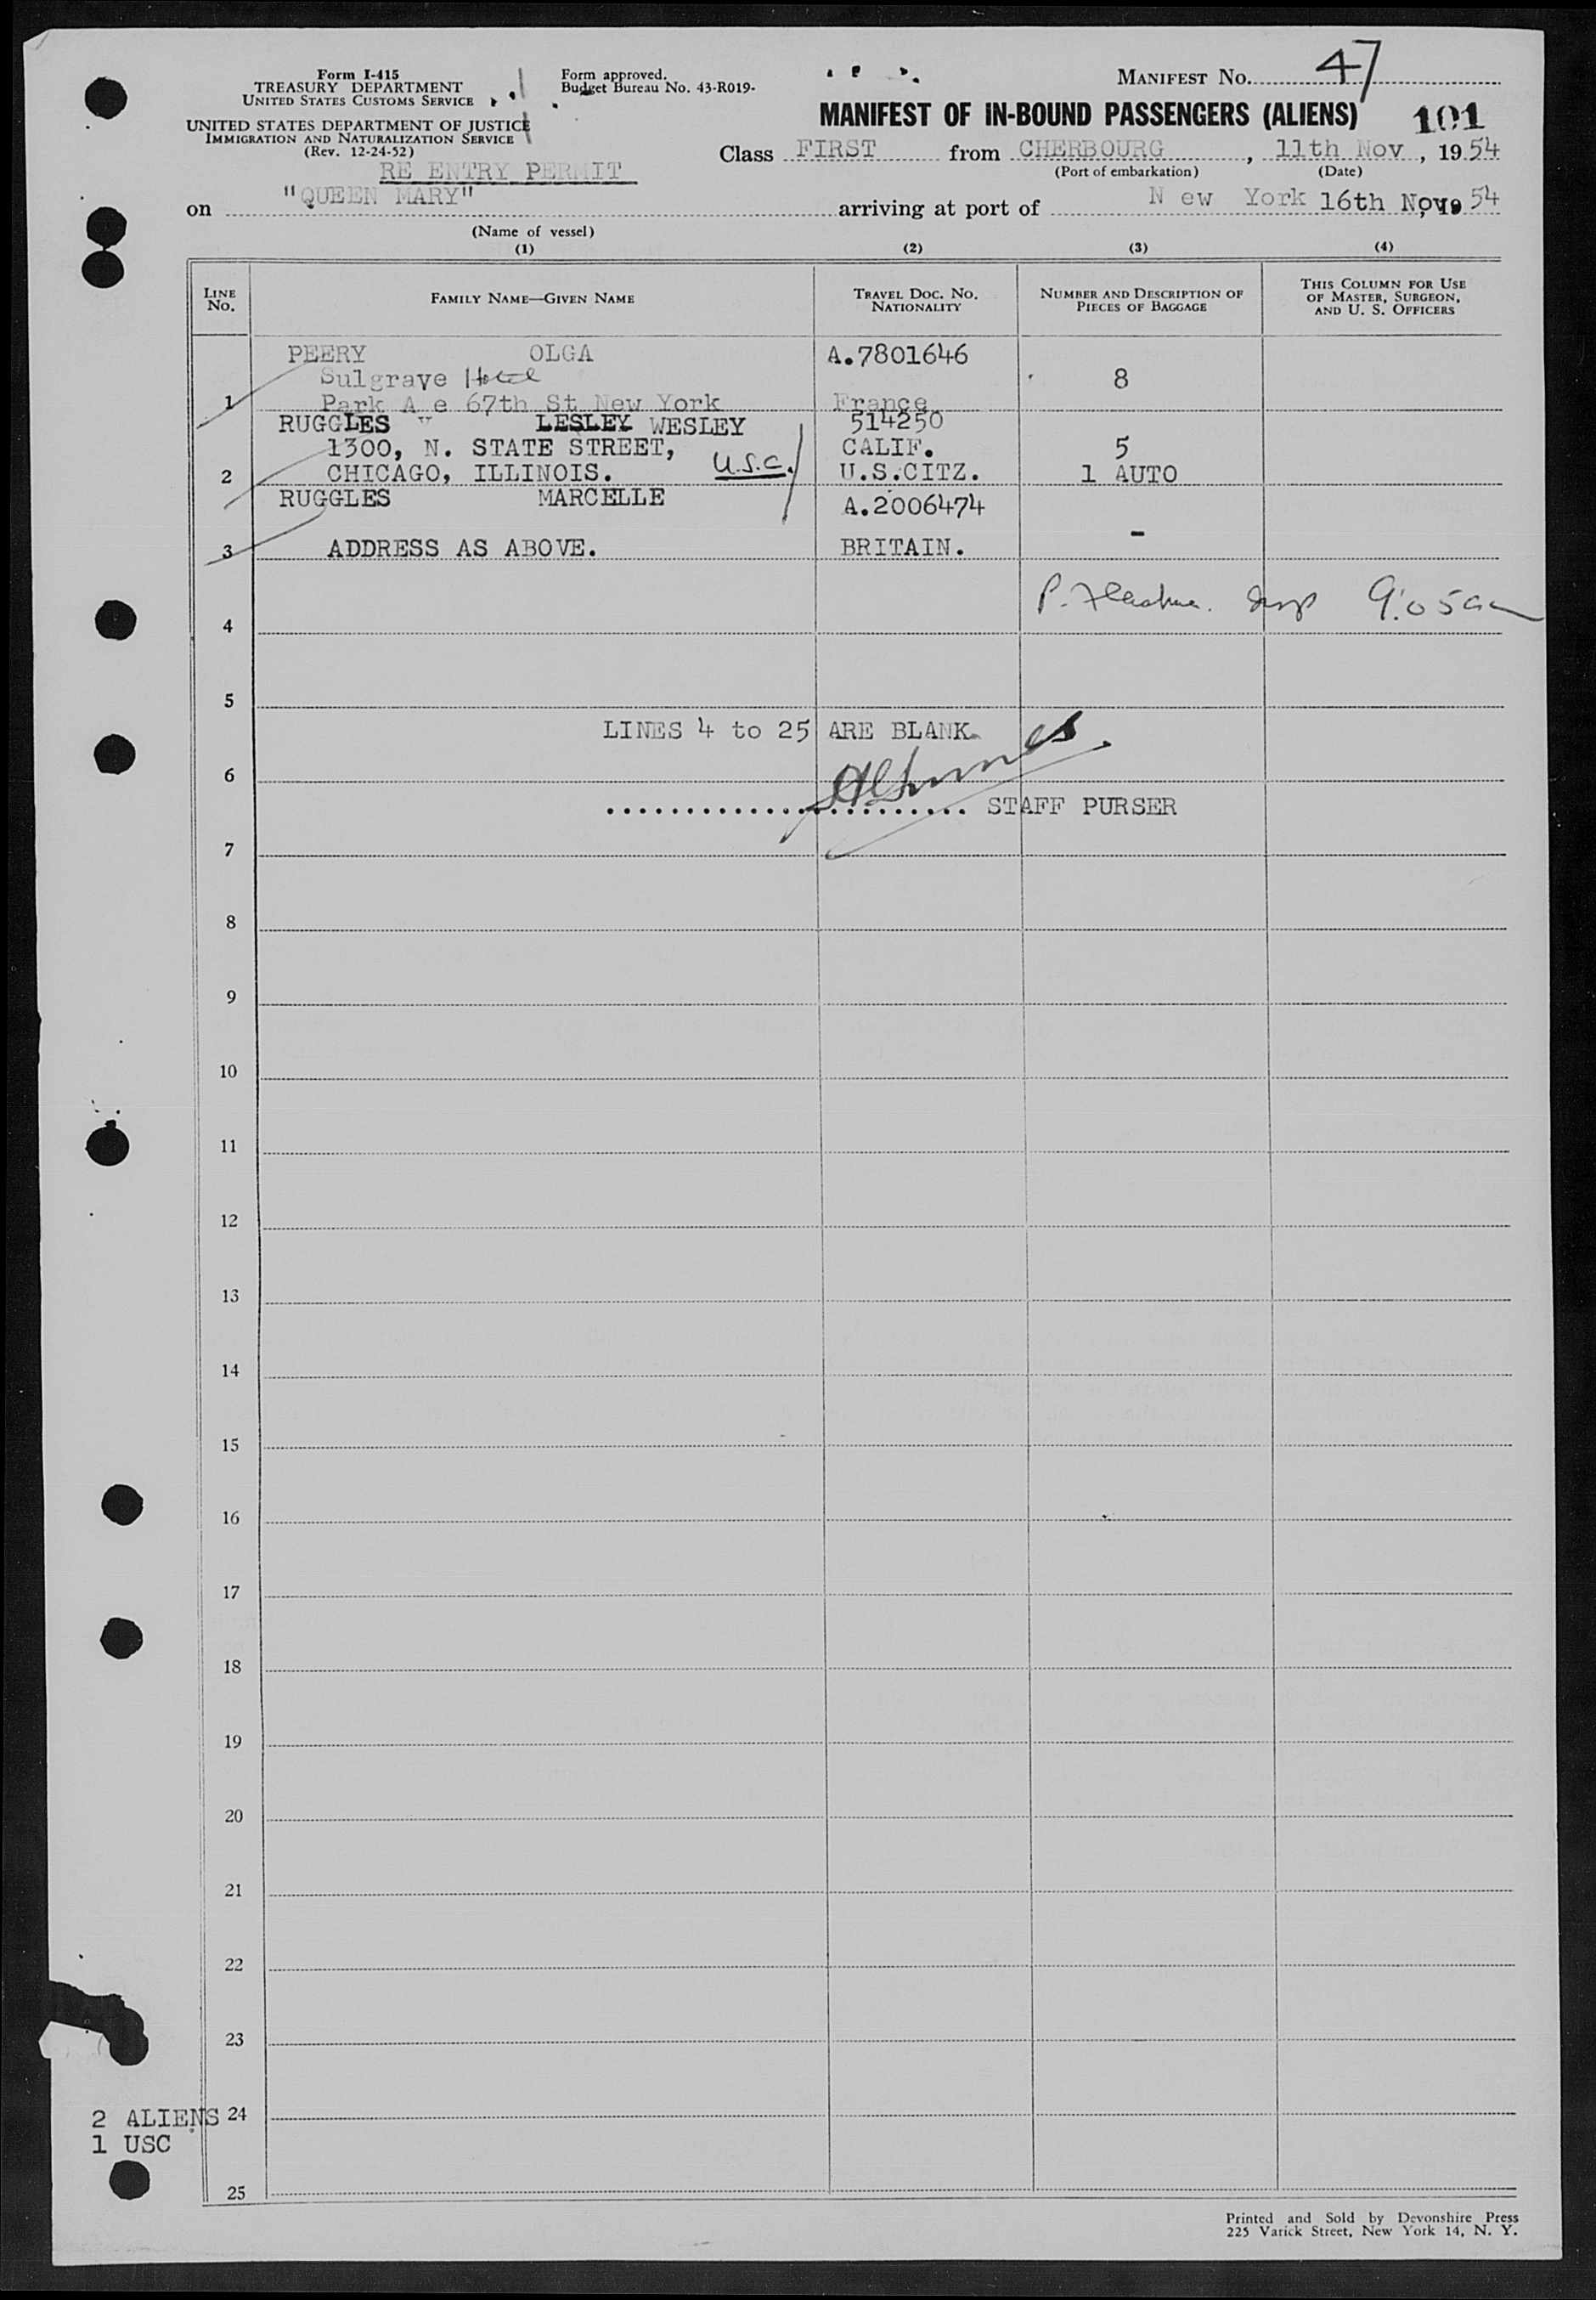 Form I-415
TREASURY DEPARTMENT
UNITED STATES CUSTOMS SERVICE
Form approved.
Budget Bureau No. 43-R019-
MANIFEST No. 47
UNITED STATES DEPARTMENT OF JUSTICE
IMMIGRATION AND NATURALIZATION SERVICE
(Rev. 12-24-52)
MANIFEST OF IN-BOUND PASSENGERS (ALIENS) 101
RE ENTRY PERMIT
Class FIRST from CHERBOURG, 11th Nov, 1954
(Port of embarkation) (Date)
on "QUEEN MARY" arriving at port of N ew York 16th Nov, 19 54
(Name of vessel)
(1) (2) (3) (4)
LINE No. FAMILY NAME—GIVEN NAME TRAVEL DOC. No. NATIONALITY NUMBER AND DESCRIPTION OF PIECES OF BAGGAGE THIS COLUMN FOR USE OF MASTER, SURGEON, AND U. S. OFFICERS
PEERY OLGA A.7801646
Sulgrave Hotel 8
1 Park A e 67th St New York France
RUGGLES LESLEY WESLEY 514250
1300, N. STATE STREET, CALIF. 5
2 CHICAGO, ILLINOIS. U.S.C. U.S.CITZ. 1 AUTO
RUGGLES MARCELLE A.2006474
3 ADDRESS AS ABOVE. BRITAIN. -
P. 9:05am
4
5
LINES 4 to 25 ARE BLANK.
6
STAFF PURSER
7
8
9
10
11
12
13
14
15
16
17
18
19
20
21
22
23
2 ALIENS 24
1 USC
25
Printed and Sold by Devonshire Press
225 Varick Street, New York 14, N. Y.